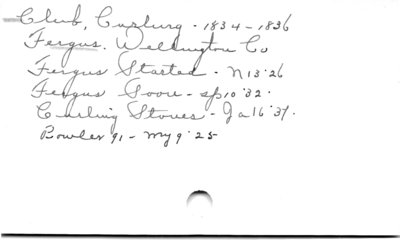 Club, Curling - 1834-1836
Fergus. Wellington Co
Fergus Started - N13'26
Fergus - sp10'32.
Curling Stones - Ja16'37.
Bowler 91 - my9'25